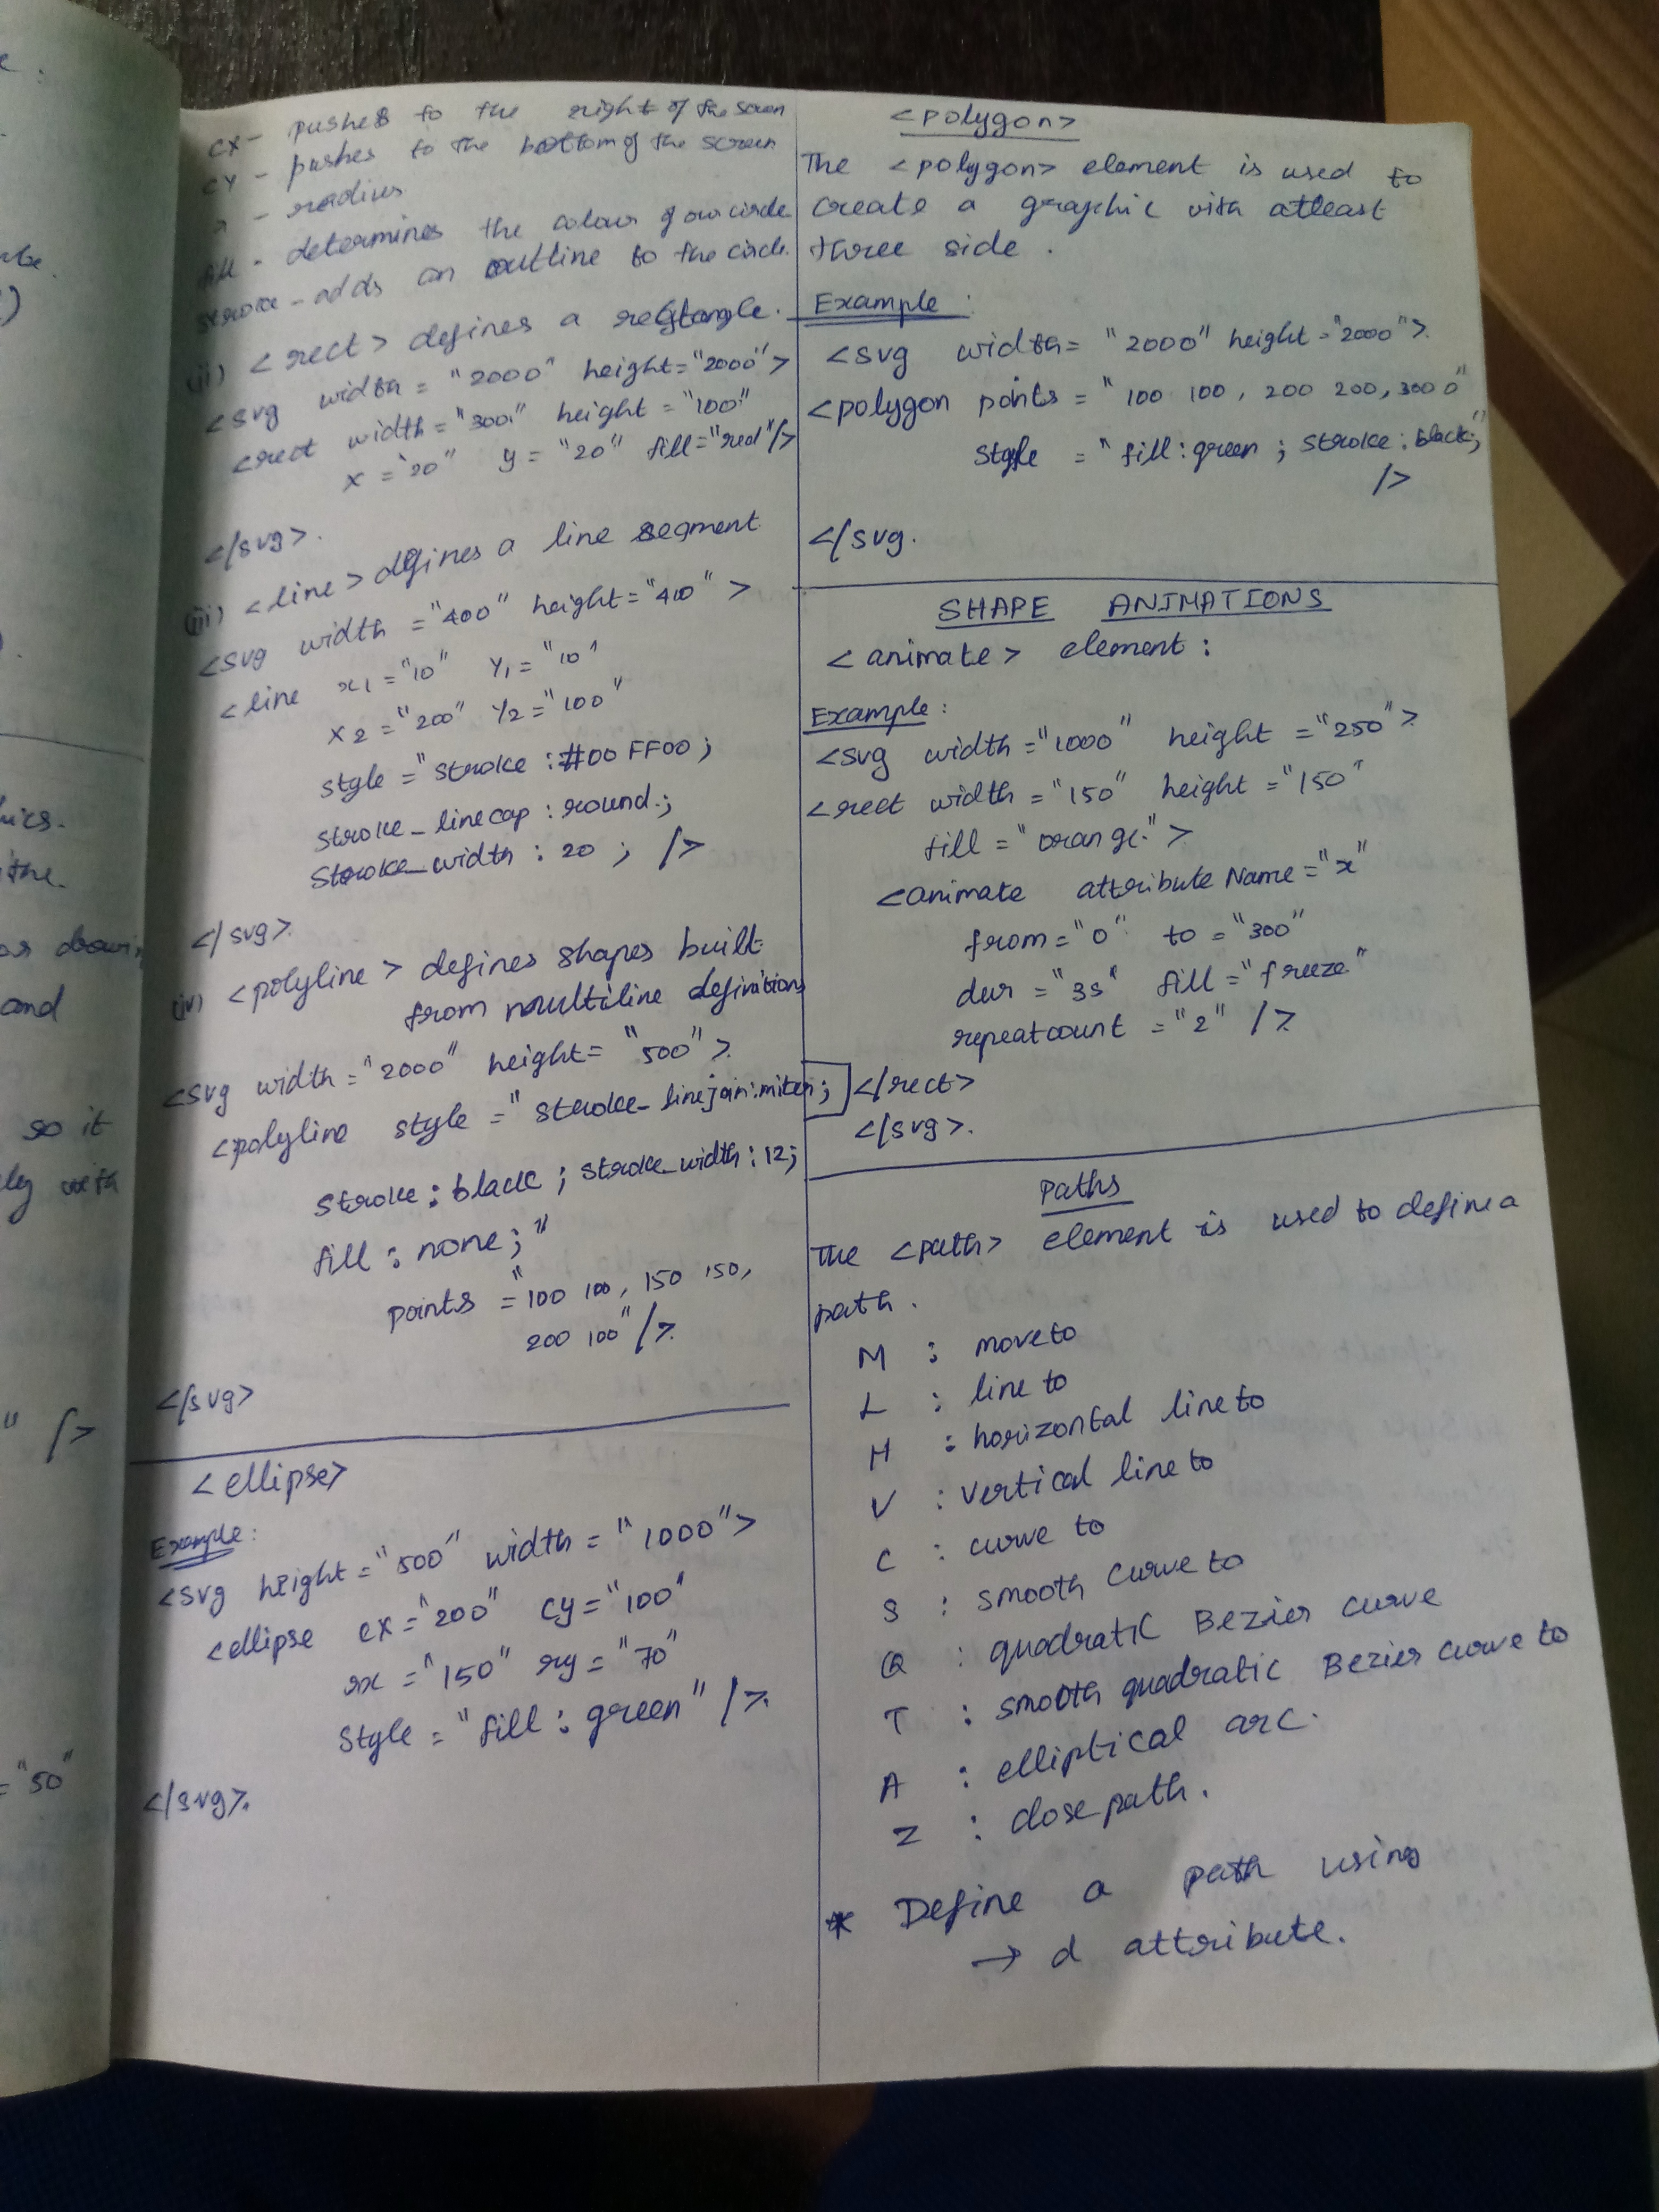 cx - pushes to the right of the screen
cy - pushes to the bottom of the screen
r - radius
fill - determines the colour of our circle
stroke - adds an outline to the circle.
(ii) <rect> defines a rectangle.
<svg width = "2000" height="2000">
<rect width="300" height="100"
x = "20" y = "20" fill="red"/>
</svg>.
(iii) <line> defines a line segment
<svg width = "400" height="400">
<line x1="10" y1="10"
x2="200" y2="100"
style="stroke:#00FF00;
stroke_linecap:round.;
stroke_width:20; />
</svg>.
(iv) <polyline> defines shapes built
from multiline definitions
<svg width="2000" height="500">.
<polyline style="stroke_linejoin:miter;
stroke:black; stroke_width:12;
fill:none;"
points="100 100, 150 150,
200 100"/>.
</svg>
<ellipse>
Example:
<svg height="500" width="1000">
<ellipse cx="200" cy="100"
rx="150" ry="70"
style="fill:green" />.
</svg>.
<polygon>
The <polygon> element is used to
create a graphic with atleast
three side.
Example:
<svg width="2000" height="2000">.
<polygon points="100 100, 200 200, 300 0"
style="fill:green; stroke:black;"
/>
</svg.
SHAPE ANIMATIONS
<animate> element:
Example:
<svg width="1000" height="250">
<rect width="150" height="150"
fill="orange">
<animate attributeName="x"
from="0" to="300"
dur="3s" fill="freeze"
repeatcount="2" />
</rect>
</svg>.
Paths
The <path> element is used to define a
path.
M : move to
L : line to
H : horizontal line to
V : vertical line to
C : curve to
S : smooth curve to
Q : quadratic Bezier curve
T : smooth quadratic Bezier curve to
A : elliptical arc.
Z : close path.
* Define a path using
→ d attribute.
so it
and
"/>
="50"